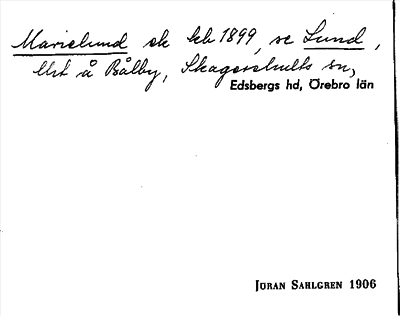 Marielund ek kb 1899, se Lund,
lht å Bålby, Skagershults sn,
Edsbergs hd, Örebro län
JÖRAN SAHLGREN 1906